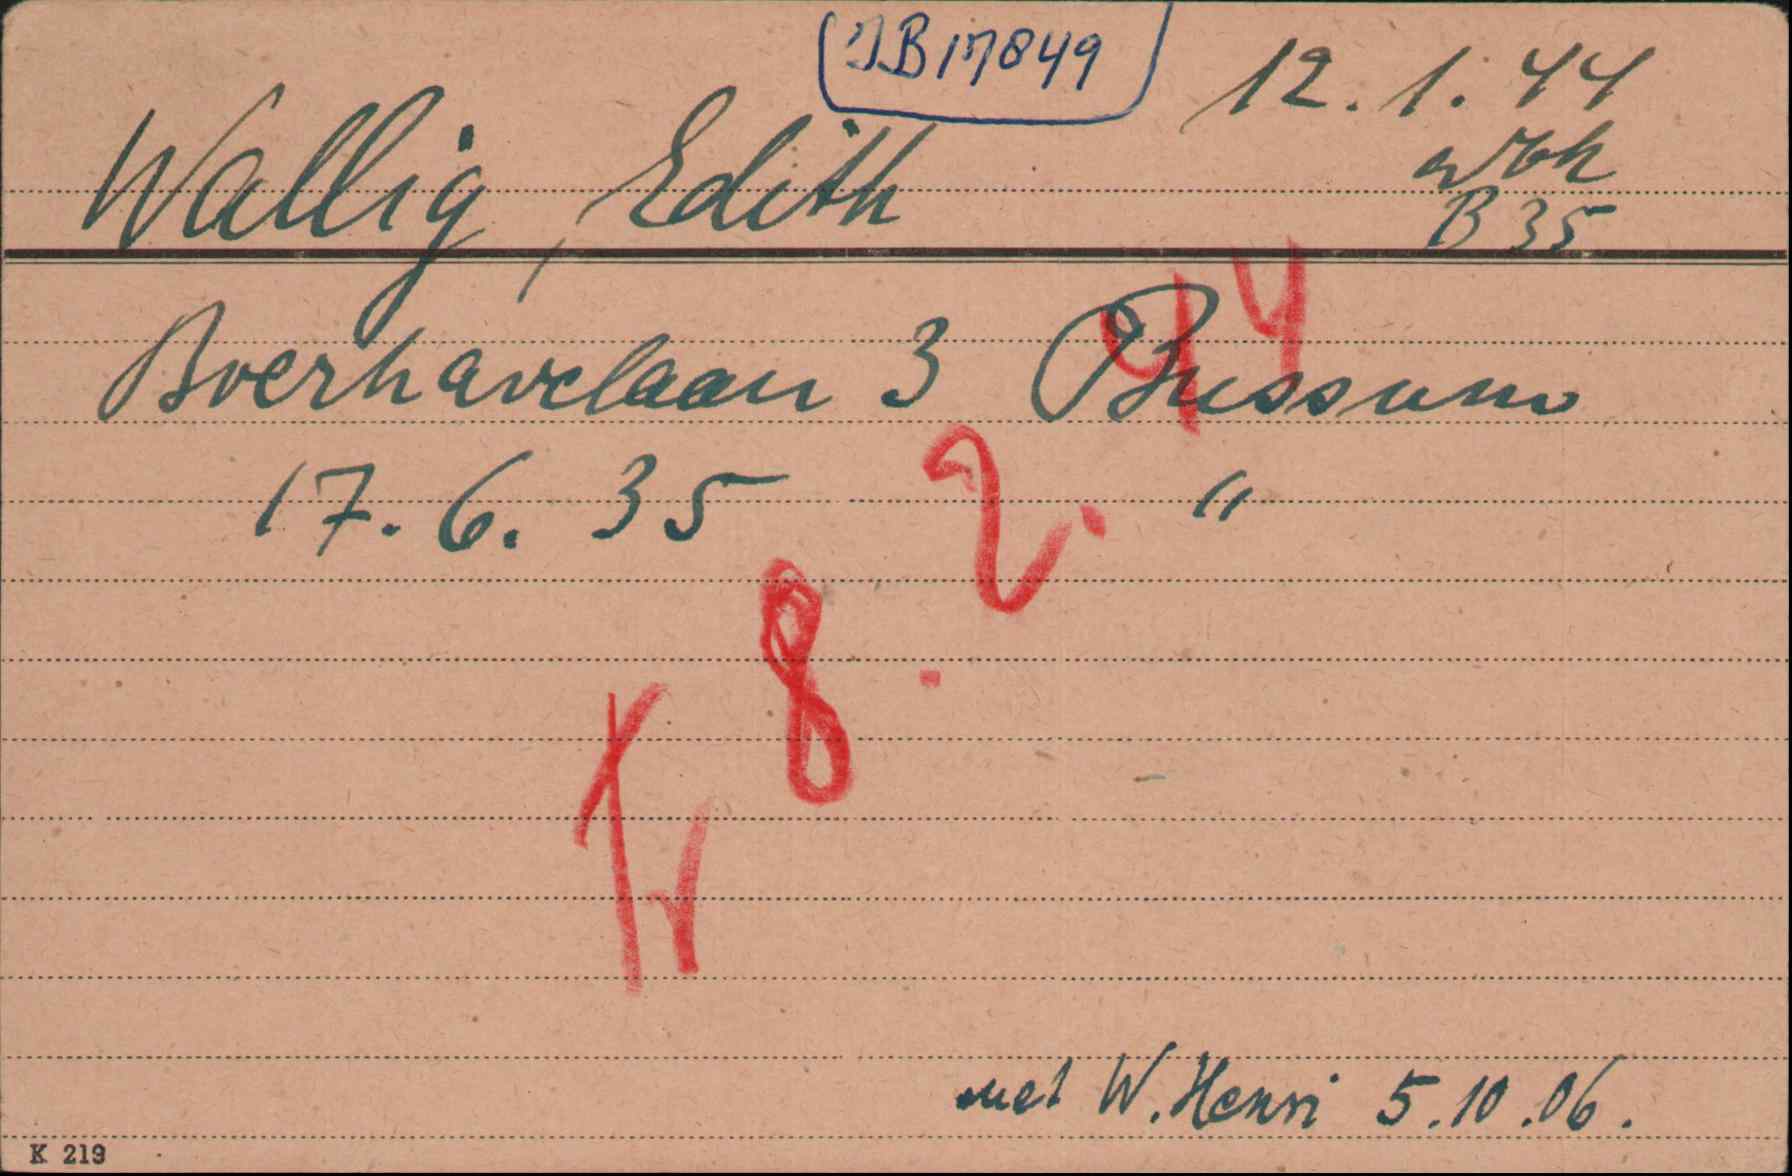 JB 17849
12.1.44
Wallig, Edith
wbk
B 35
Boerhavelaan 3 Bussum
17.6.35 "
Tr 8.2.44
met W. Henri 5.10.06.
K 219